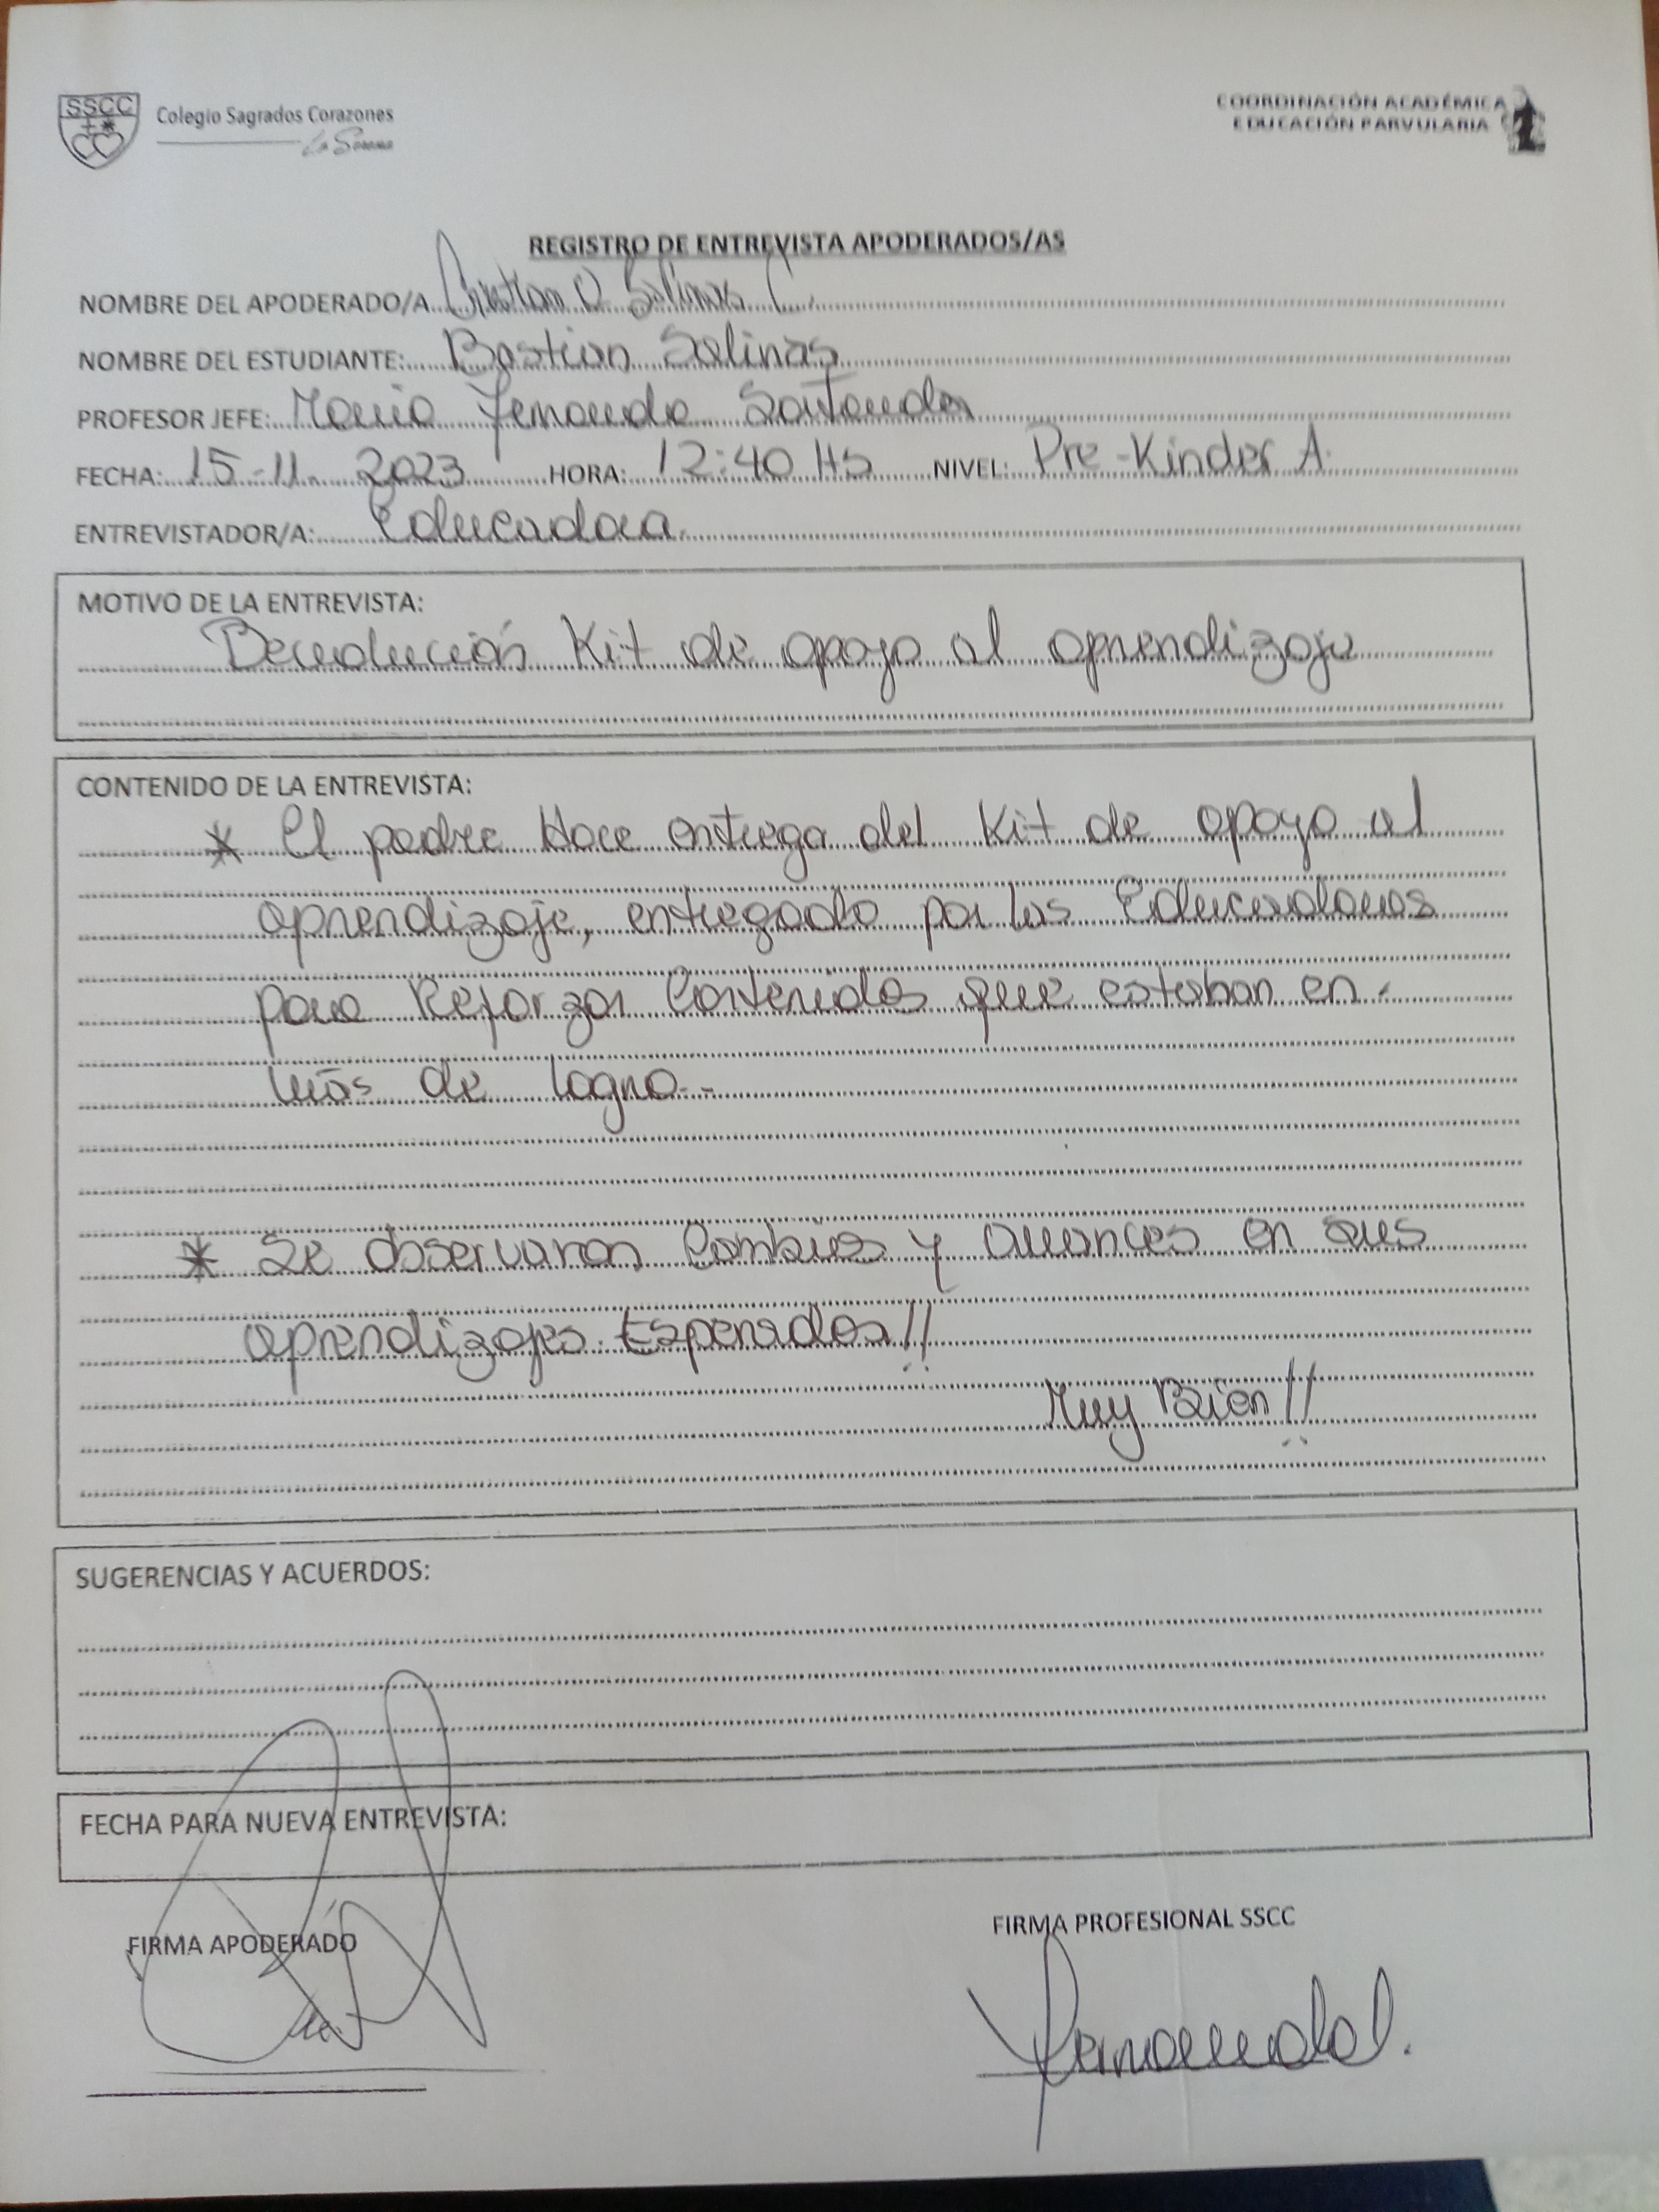 SSCC
Colegio Sagrados Corazones
La Serena
COORDINACIÓN ACADÉMICA
EDUCACIÓN PARVULARIA
REGISTRO DE ENTREVISTA APODERADOS/AS
NOMBRE DEL APODERADO/A Cristian O Salinas C.
NOMBRE DEL ESTUDIANTE: Bastian Salinas
PROFESOR JEFE: Maria Fernanda Santander
FECHA: 15-11. 2023 HORA: 12:40 Hs NIVEL: Pre-Kinder A.
ENTREVISTADOR/A: Educadora.
MOTIVO DE LA ENTREVISTA:
Devolución Kit de apoyo al aprendizaje
CONTENIDO DE LA ENTREVISTA:
* El padre Hace entrega del Kit de apoyo al
aprendizaje, entregado por las Educadoras
para Reforzar Contenidos que estaban en
vías de logro.
* Se observaron Cambios y avances en sus
aprendizajes Esperados!!
Muy Bien!!
SUGERENCIAS Y ACUERDOS:
FECHA PARA NUEVA ENTREVISTA:
FIRMA APODERADO
FIRMA PROFESIONAL SSCC